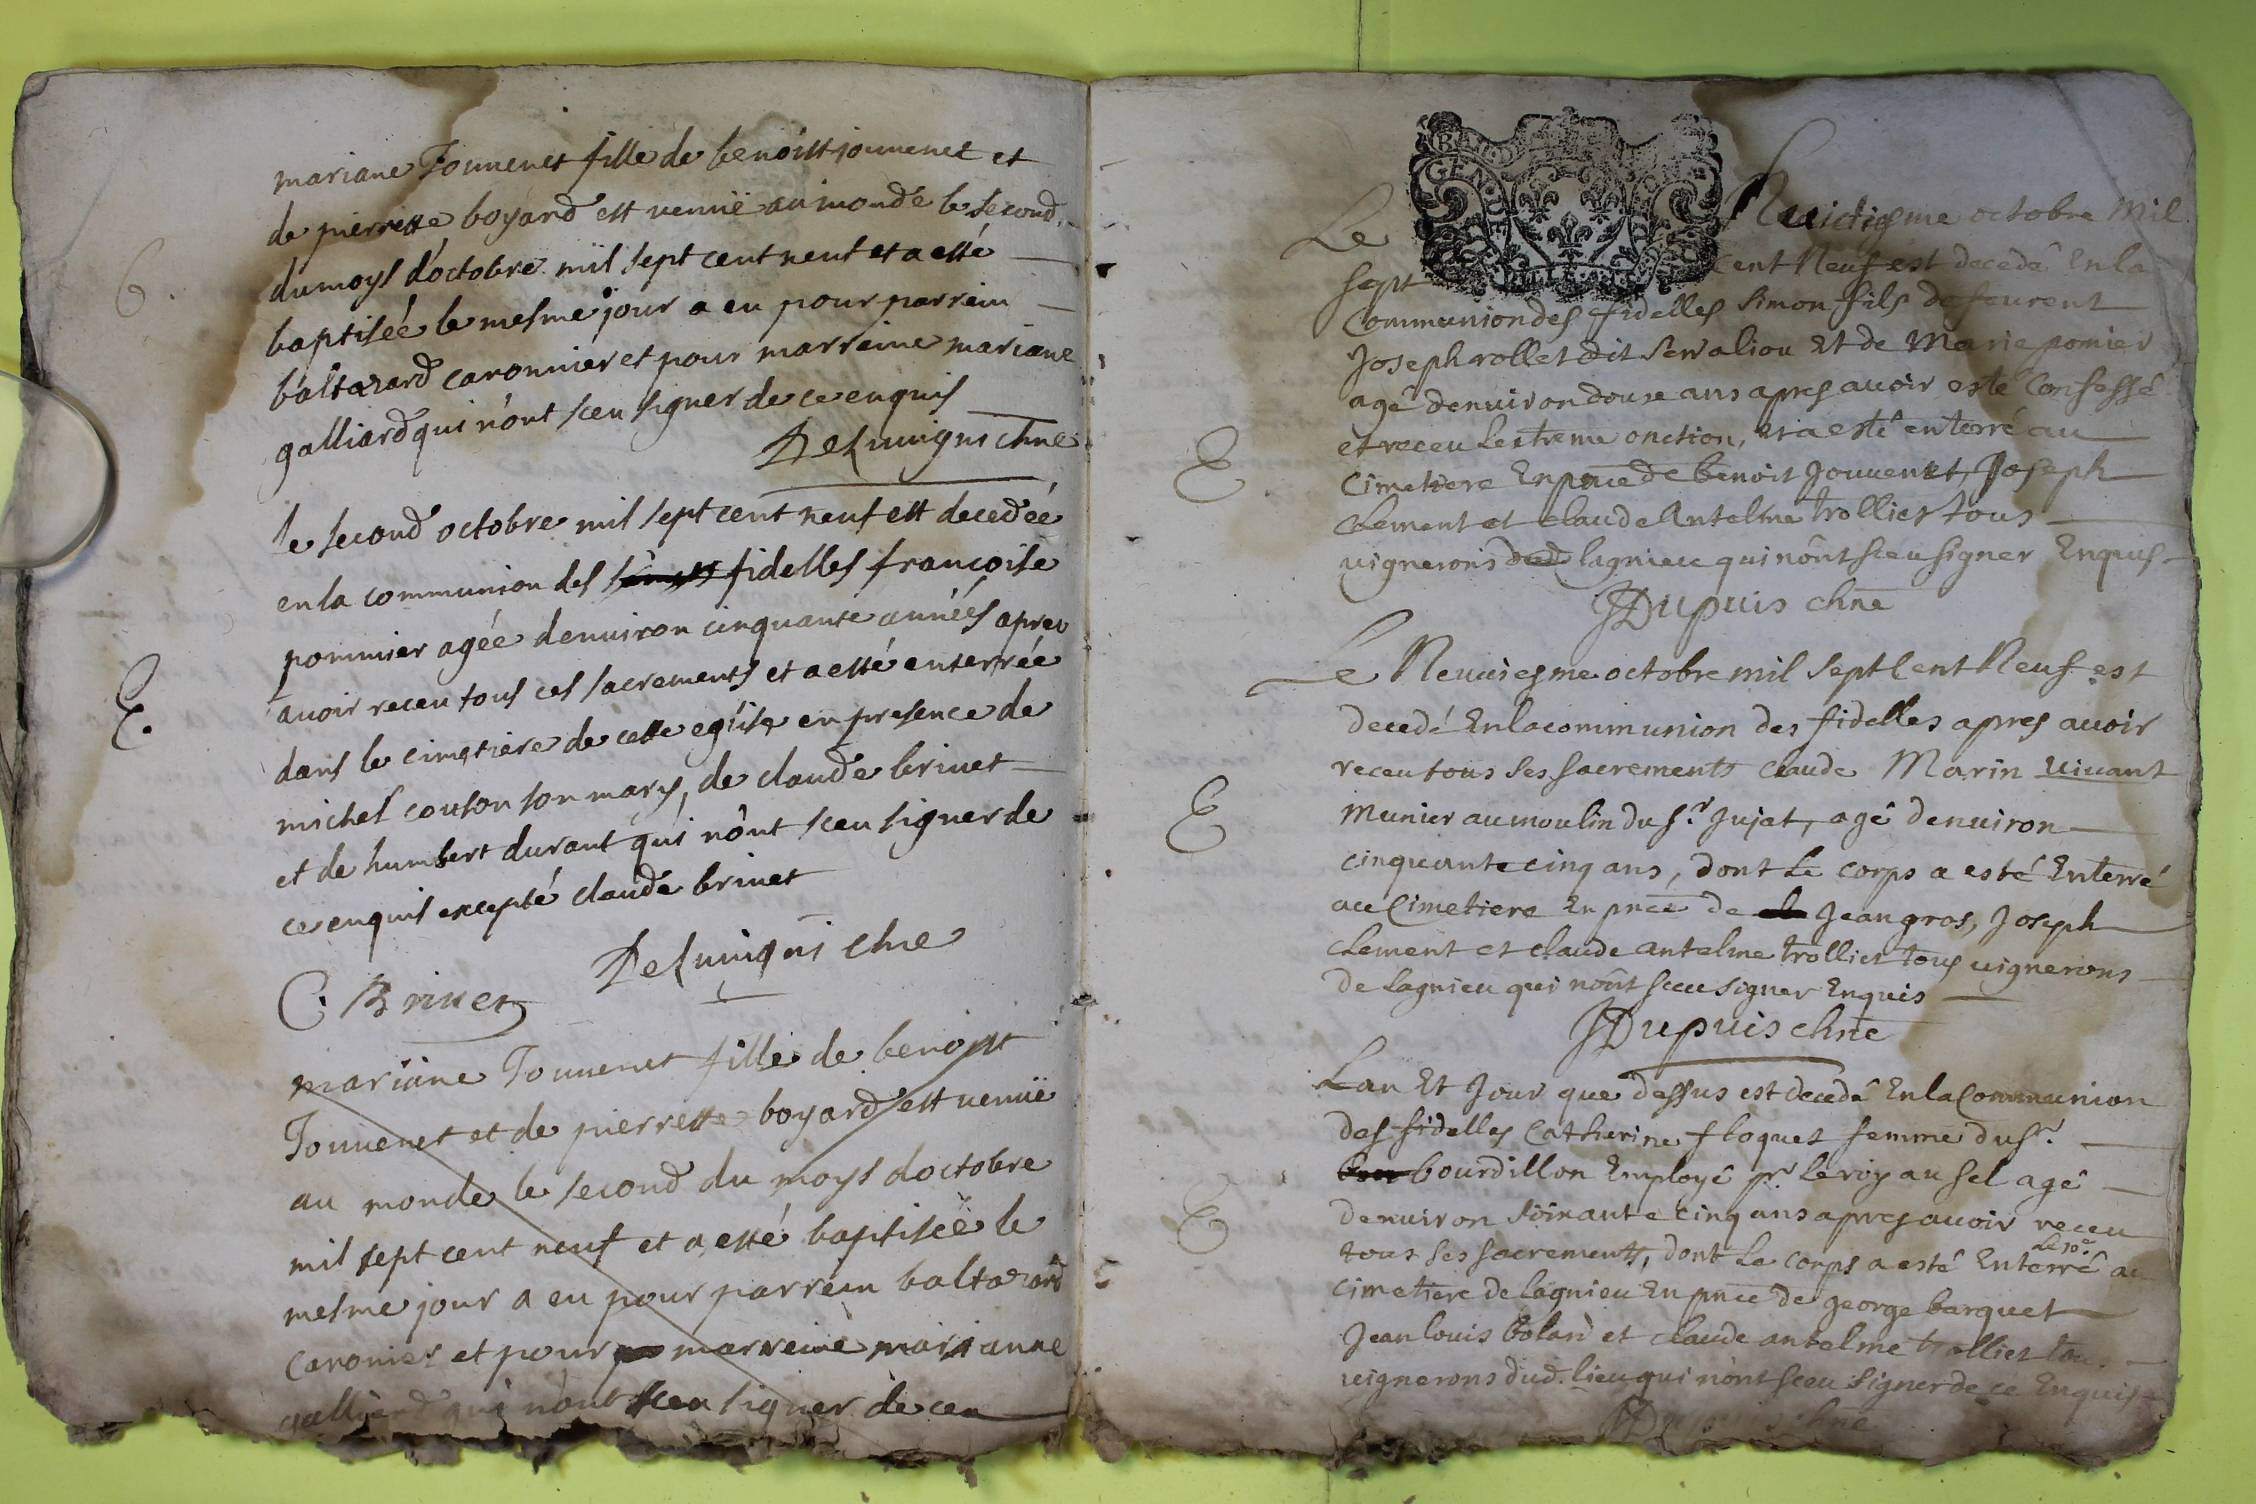 mariane Jouuenet fille de benoist jouuenet et
de pierrette boyard est uenuë au monde le second
du moys d'octobre mil sept cent neuf et a esté
B.
baptisée le mesme jour a eu pour parrein
baltazard caronnier et pour marreine mariane
galliard qui n'ont sceu signer de ce enquis
chne
le second octobre mil sept cent neuf est decedée
en la communion des fidelles françoise
pommier agée denuiron cinquante années apres
E.
auoir receu tous ces sacrements et a esté enterrée
dans le cimetiere de cette eglise en presence de
michel couson son mary, de claude briuet
et de humbert durant qui nônt sceu signer de
ce enquis excepté claude briuet
chne
C. Briuet
mariane Jouuenet fille de benoist
Jouuenet et de pierrette boyard est uenuë
au monde le second du moys doctobre
mil sept cent neuf et a esté baptiseë le
mesme jour a eu pour parrein baltazard
caronier et pour marreine marianne
galliard qui nônt sceu signer de ce
BRESSE
GEN
Le huictiesme octobre Mil
sept Cent Neuf est decedé En la
Communion des fidelles Simon fils de
Joseph rollet dit Et de Marie pomier
agê denuiron douze ans apres auoir esté Confessé
et receu lextreme onction, et a esté enterré au
E
Cimetiere En pnce de benoit Jouuenet, Joseph
Clement et Claude Antelme trollier tous
uignerons dud lagnieu qui nônt sceu signer Enquis
JDupuis chne
Le Neuuiesme octobre mil sept Cent Neuf est
decedé En la communion des fidelles apres auoir
receu tous ses sacrements Claude Marin uiuant
E
Munier au moulin du sr. Jujat, agê denuiron
cinquante cinq ans, dont Le corps a esté Enterré
au Cimetiere En pnce de Jean gros, Joseph
Clement et Claude antelme trollier tous uignerons
de lagnieu qui nônt sceu signer Enquis
JDupuis chne
Lan Et Jour que dessus est decedê En la Communion
des fidelles Catherine floquet femme du sr.
bourdillon Employê pr. le roy au sel agê
E
denuiron soixante cinq ans apres auoir receu
tous ses sacrements, dont Le corps a esté Enterré Le 10e au
cimetiere de lagnieu En pnce de george barquet
Jean louis bolard et Claude antelme trollier tous
uignerons dud. lieu qui nônt sceu signer de ce Enquis
JDupuis chne